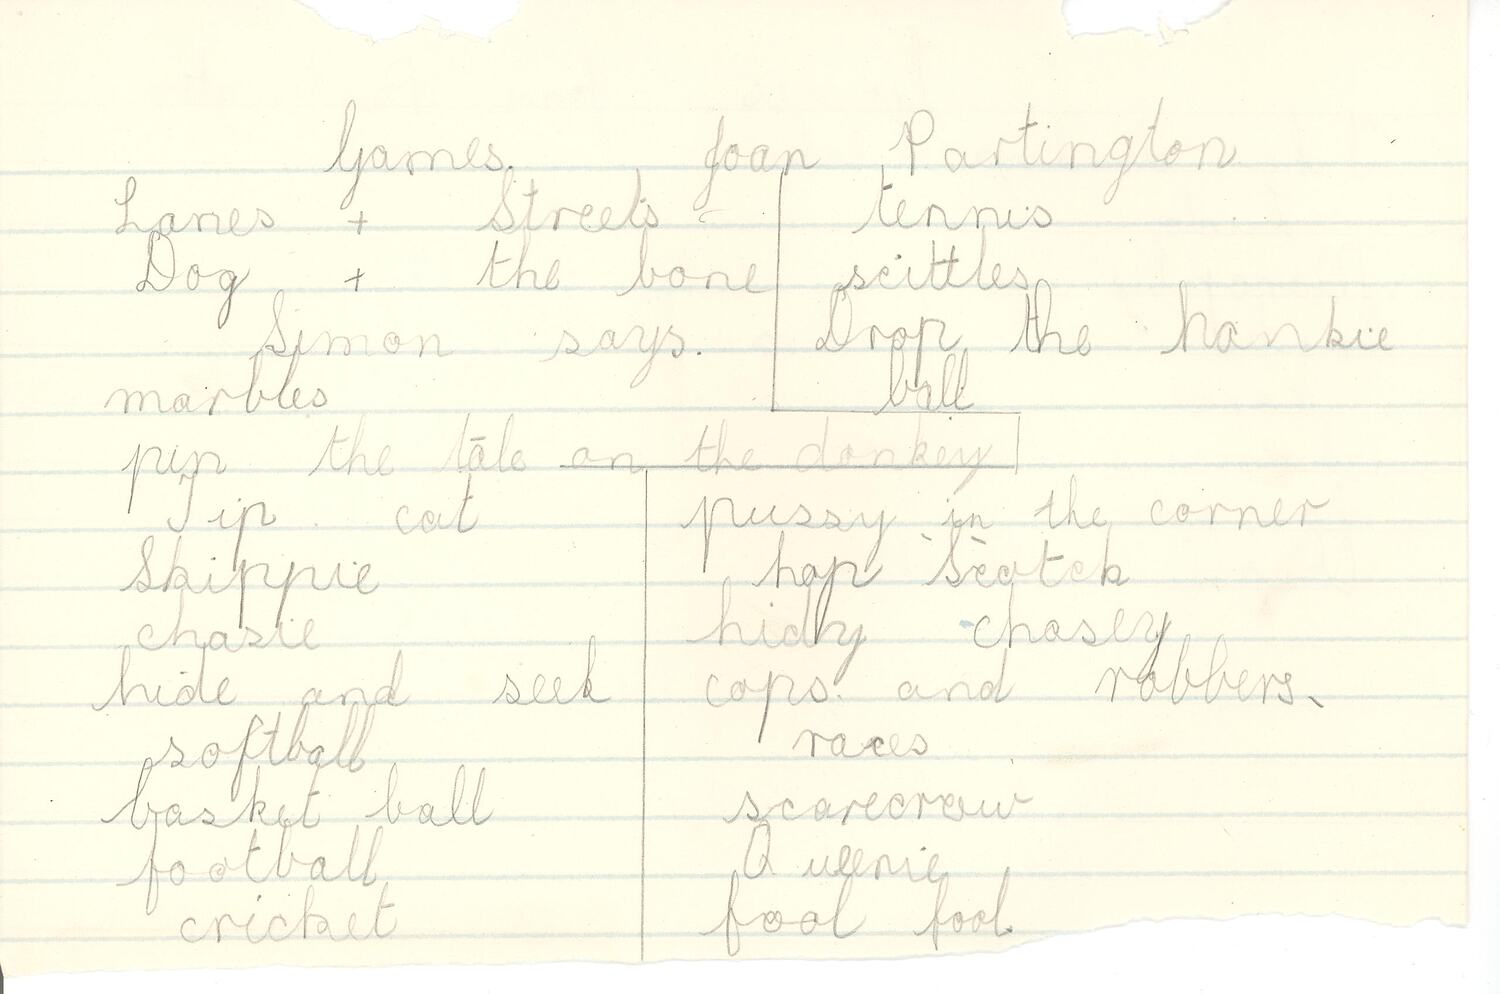 Games. Joan Partington
Lanes + Streets
Dog + the bone
Simon says.
marbles
tennis
scittles
Drop the hankie
ball
pin the tale on the donkey
Tip cat
Skippie
chasie
hide and seek
softball
basket ball
football
cricket
pussy in the corner
hop Scotch
hidy chasey
cops and robbers.
races
scarecrow
Queenie
fool fool